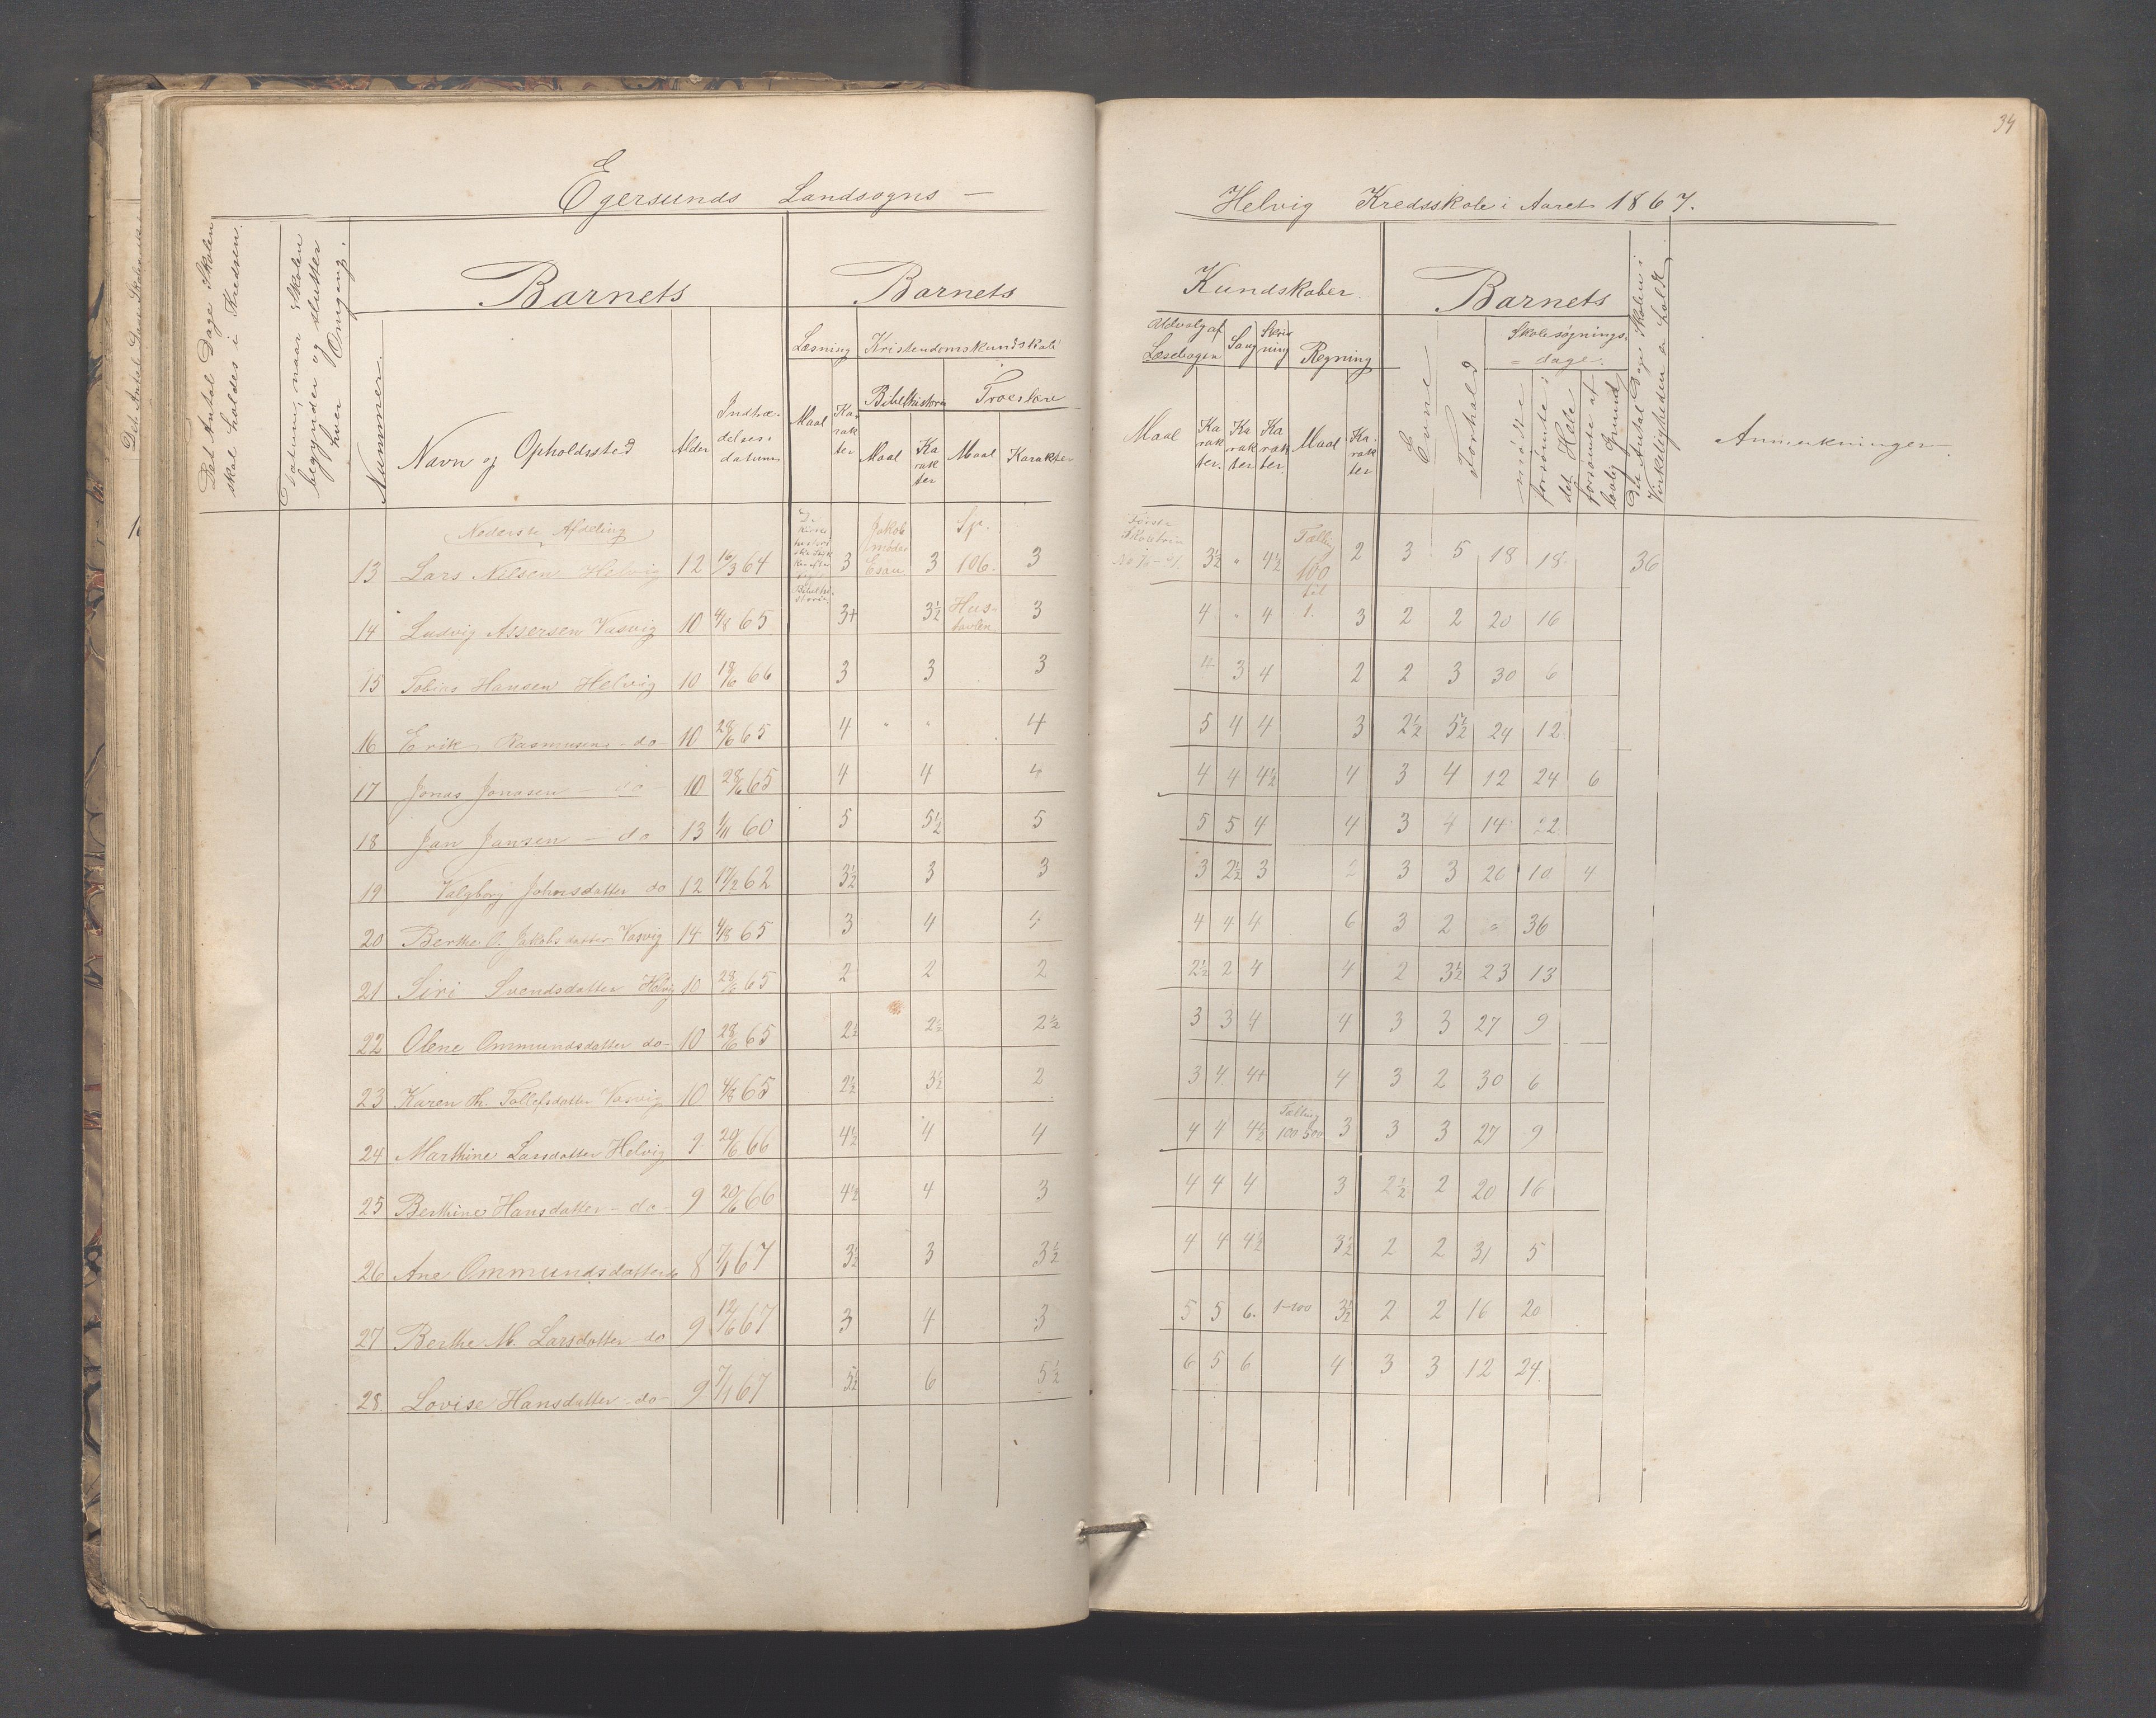 34
Egersunds Landsogns —
Helvig Kredsskole i Aaret 1867.
Det Antal Dage Skolen skal holdes i Kredsen.
Datum, naar Skolen begynder og slutter hver Omgang.
Nummer
Barnets
Navn og Opholdssted
Alder
Indtrædelsesdatum
Barnets
Kundskaber
Læsning
Maal
Karakter
Kristendomskundskab
Bibelhistorie
Maal
Karakter
Troeslære
Maal
Karakter
Udvalg af Læsebogen
Maal
Karakter.
Sang
Karakter
Skrivning
Karakter
Regning
Maal
Karakter
Barnets
Evne
Forhold
Skolesøgnings-dage.
mødte
forsømte i det Hele
forsømte af lovlig Grund
Det Antal Dage Skolen i Virkeligheden er holdt
Anmerkninger.
Nederste Afdeling
13 Lars Nilsen Helvig 12 16/3 64 3 Jakob møder Esau. 3 Sp. 106. 3 3½ " 4½ Tælling 100 til 1. 2 3 5 18 18 36
14 Ludvig Assersen Vasvig 10 4/8 65 3+ 3½ Hustavlen 3 4 " 4 3 2 2 20 16
15 Tobias Hansen Helvig 10 18/6 66 3 3 3 4 3 4 2 2 3 30 6
16 Erik Rasmusen do 10 28/6 65 4 " " 4 5 4 4 3 2½ 5½ 24 12
17 Jonas Jonasen — do 10 28/6 65 4 4 4 4 4 4½ 4 3 4 12 24 6
18 Jan Jansen — do 13 1/11 60 5 5½ 5 5 5 4 4 3 4 14 22
19 Valgborg Johnsdatter do 12 17/2 62 3½ 3 3 3 2½ 3 3 3 20 10 4
20 Berthe O. Jakobsdatter Vasvig 14 4/8 65 3 4 4 4 4 4 6 3 2 " 36
21 Siri Svendsdatter Helvig 10 28/6 65 2 2 2 2½ 2 4 4 2 3½ 23 13
22 Olene Ommundsdatter do- 10 28/6 65 2½ 2½ 2½ 3 3 4 4 3 3 27 9
23 Karen Th. Tollefsdatter Vasvig 10 4/8 65 2½ 3½ 2 3 4 4+ 4 3 2 30 6
24 Marthine Larsdatter Helvig 9 20/6 66 4½ 4 4 4 4 4½ Tælling 100-500 3 3 3 27 9
25 Berthine Hansdatter - do - 9 20/6 66 4½ 4 3 4 4 4 3 2½ 2 20 16
26 Ane Ommundsdatter do 8 7/1 67 3½ 3 3½ 4 4 4½ 3½ 2 2 31 5
27 Berthe M. Larsdatter do 9 12/6 67 3 4 3 5 5 6. 1-100 3½ 2 2 16 20
28. Lovise Hansdatter do- 9 7/1 67 5½ 6 5½ 6 5 6 4 3 3 12 24